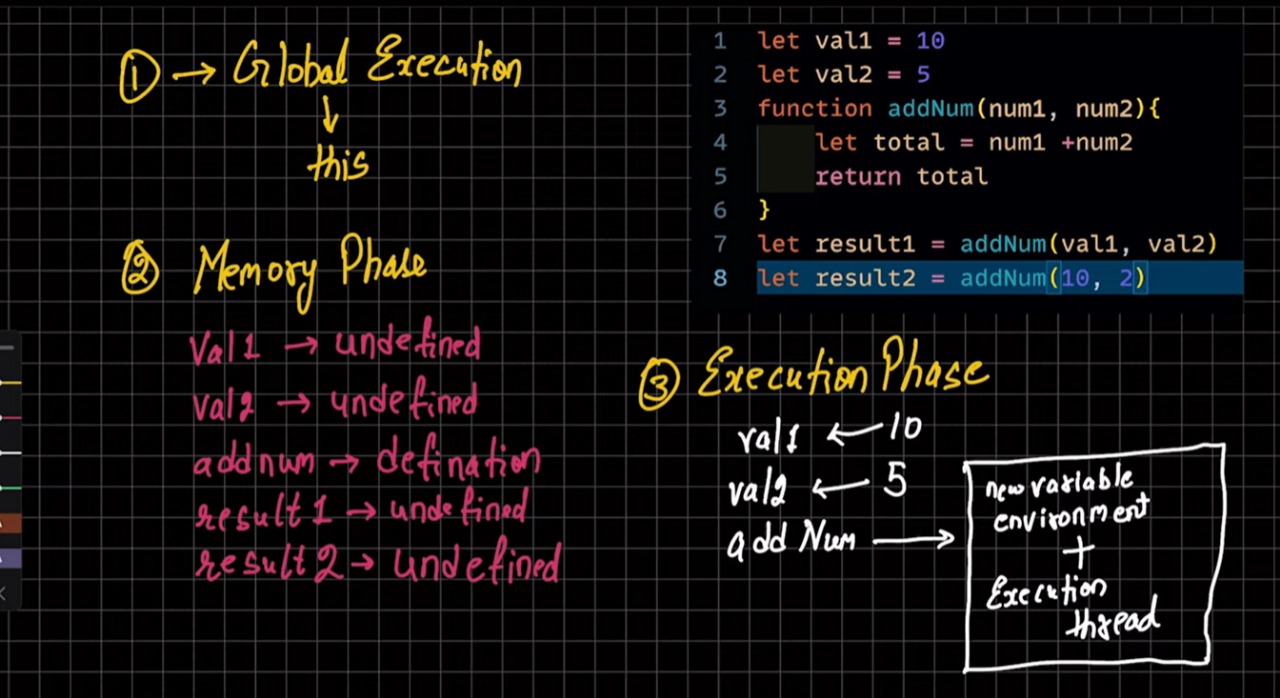 ① → Global Execution
↓
this
② Memory Phase
Val1 → undefined
val2 → undefined
addnum → defination
result1 → undefined
result2 → undefined
1 let val1 = 10
2 let val2 = 5
3 function addNum(num1, num2){
4 let total = num1 +num2
5 return total
6 }
7 let result1 = addNum(val1, val2)
8 let result2 = addNum(10, 2)
③ Execution Phase
val1 ← 10
val2 ← 5
addNum →
new variable
environment
+
Execution
thread